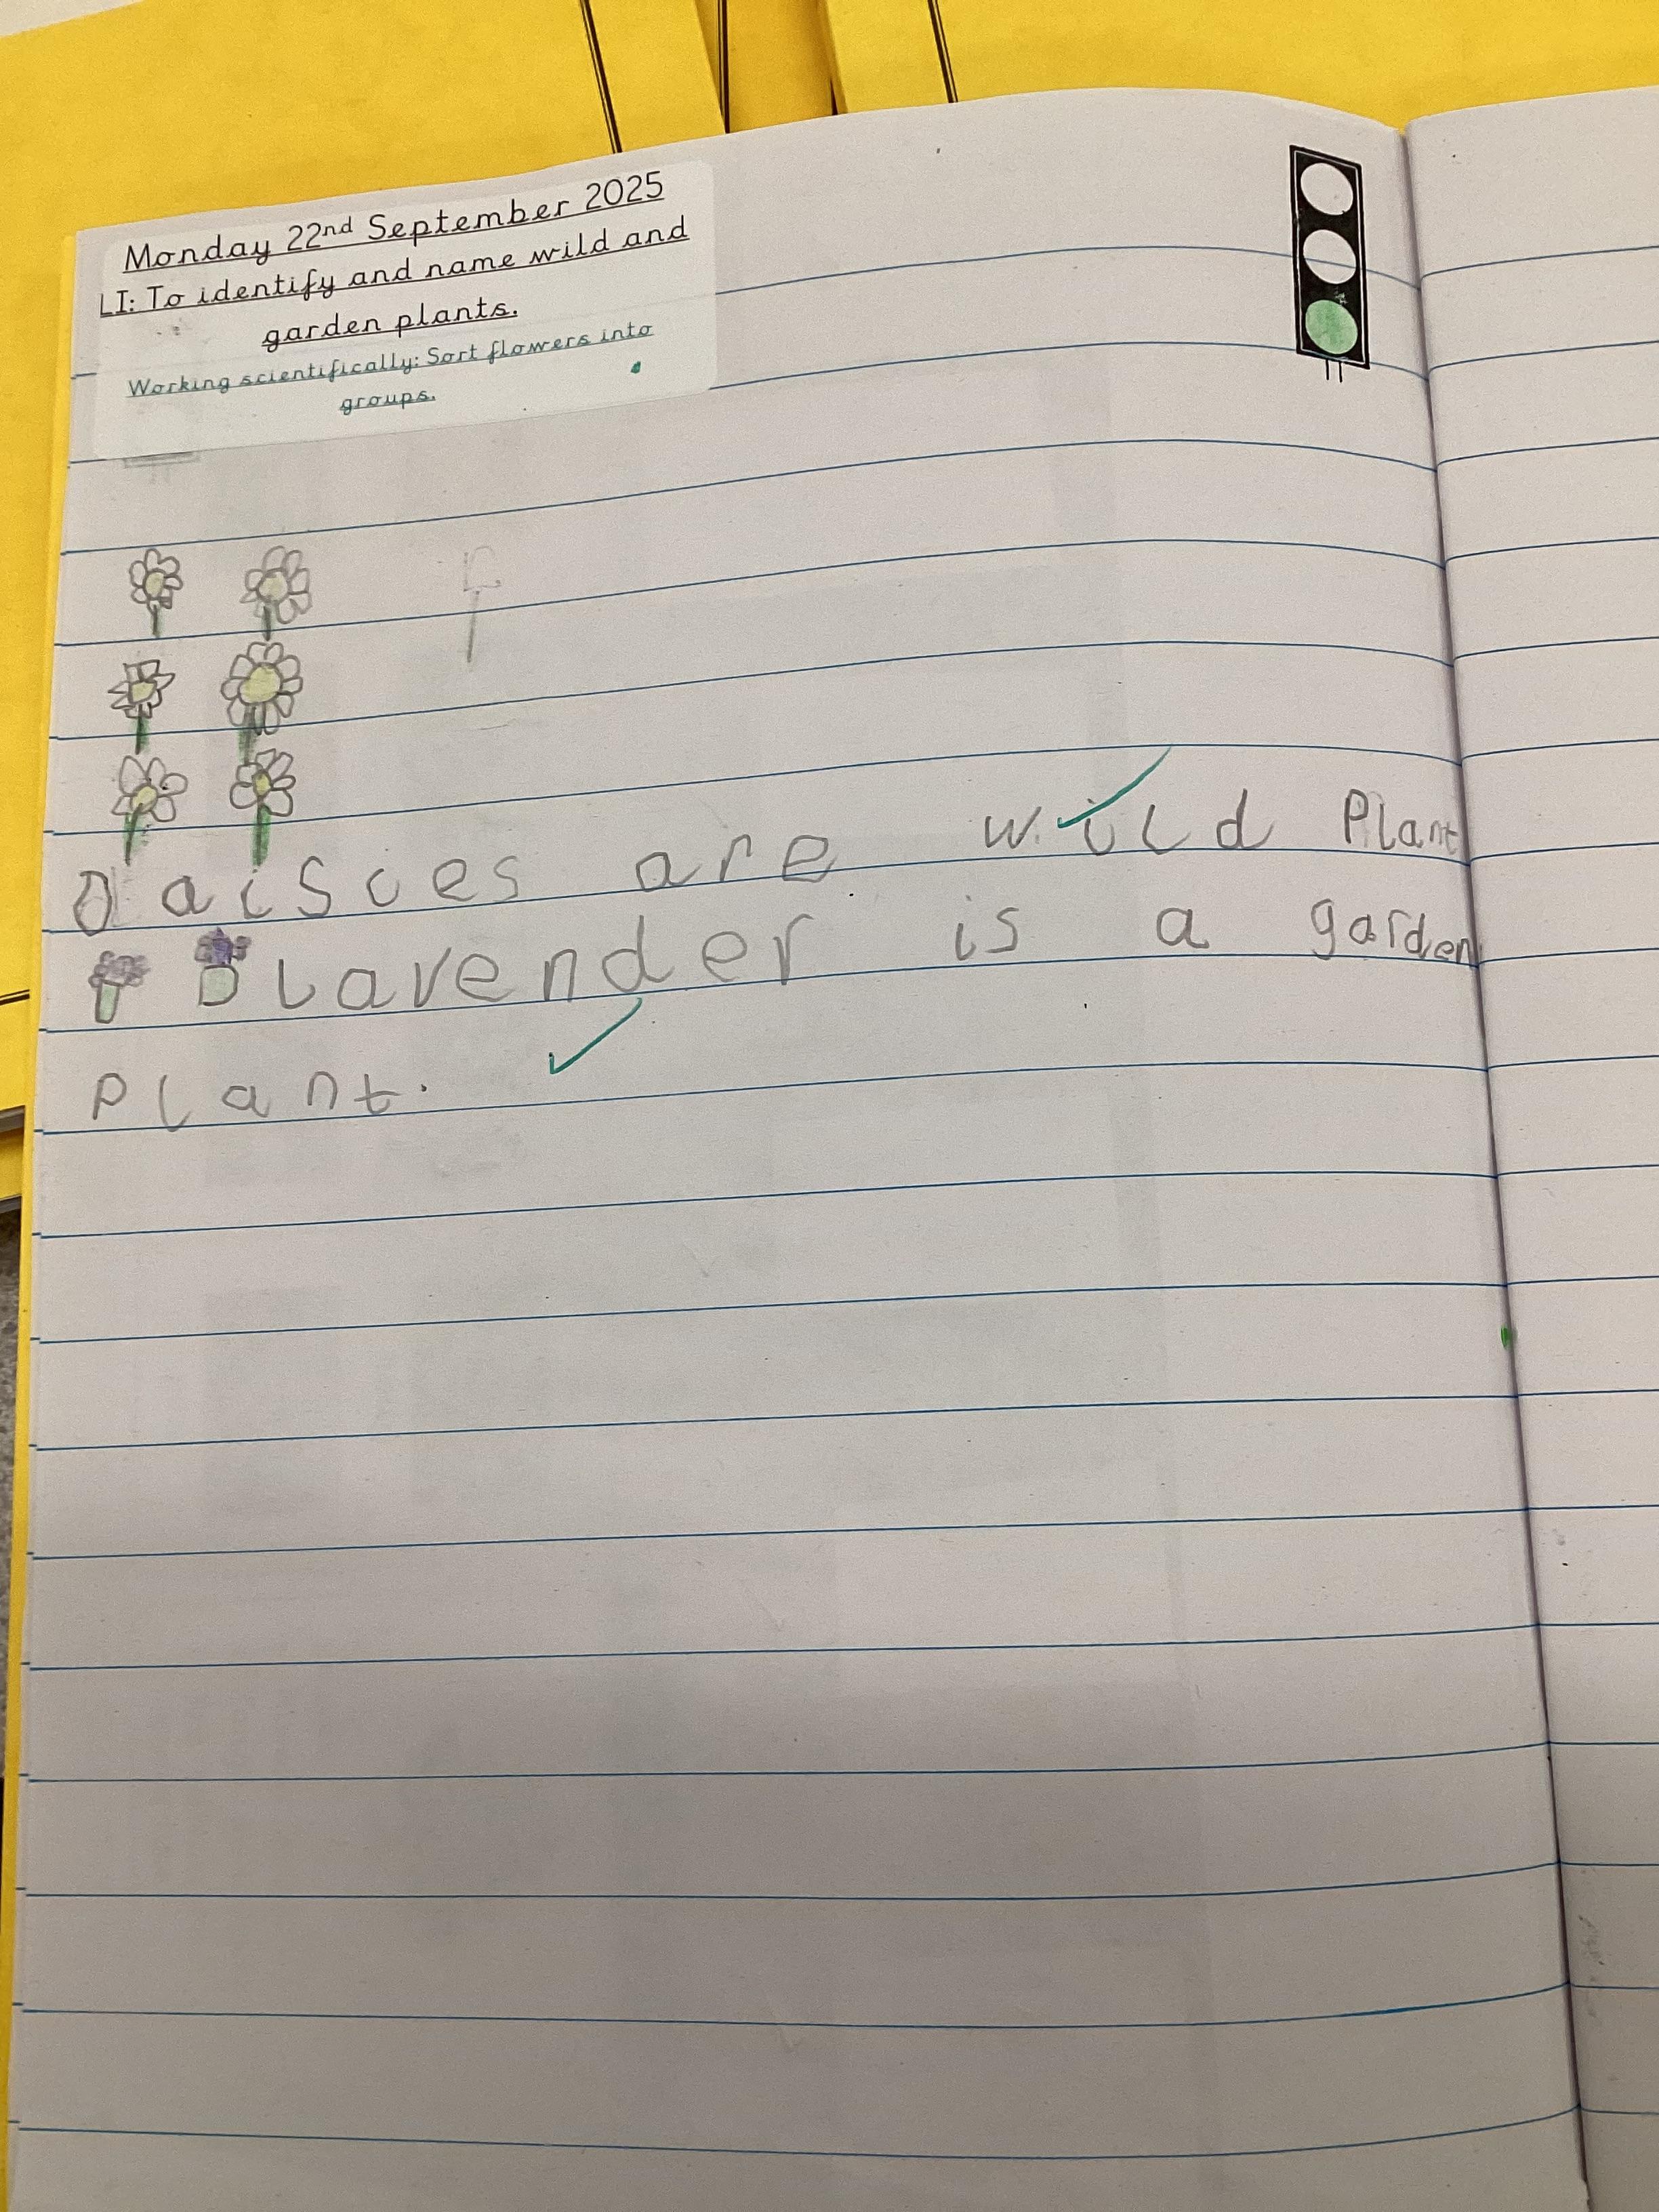 Monday 22nd September 2025
LI: To identify and name wild and
garden plants.
Working scientifically: Sort flowers into
groups.
Daisies are wild Plant
lavender is a garden
plant.